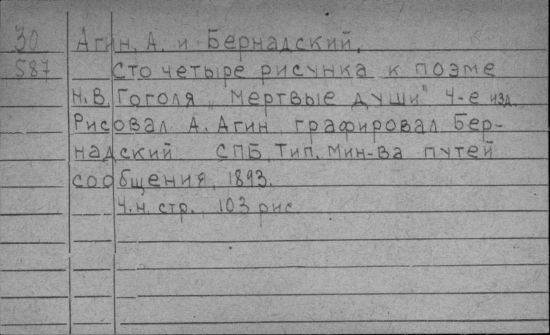 30 Агин, А. и Бернадский.
587 Сто четыре рисунка к поэме
Н.В. Гоголя „Мертвые души" 4-е изд.
Рисовал А. Агин, графировал Бер-
надский СПБ, Тип. Мин-ва путей
сообщения, 1893.
Ч.н. стр., 103 рис.